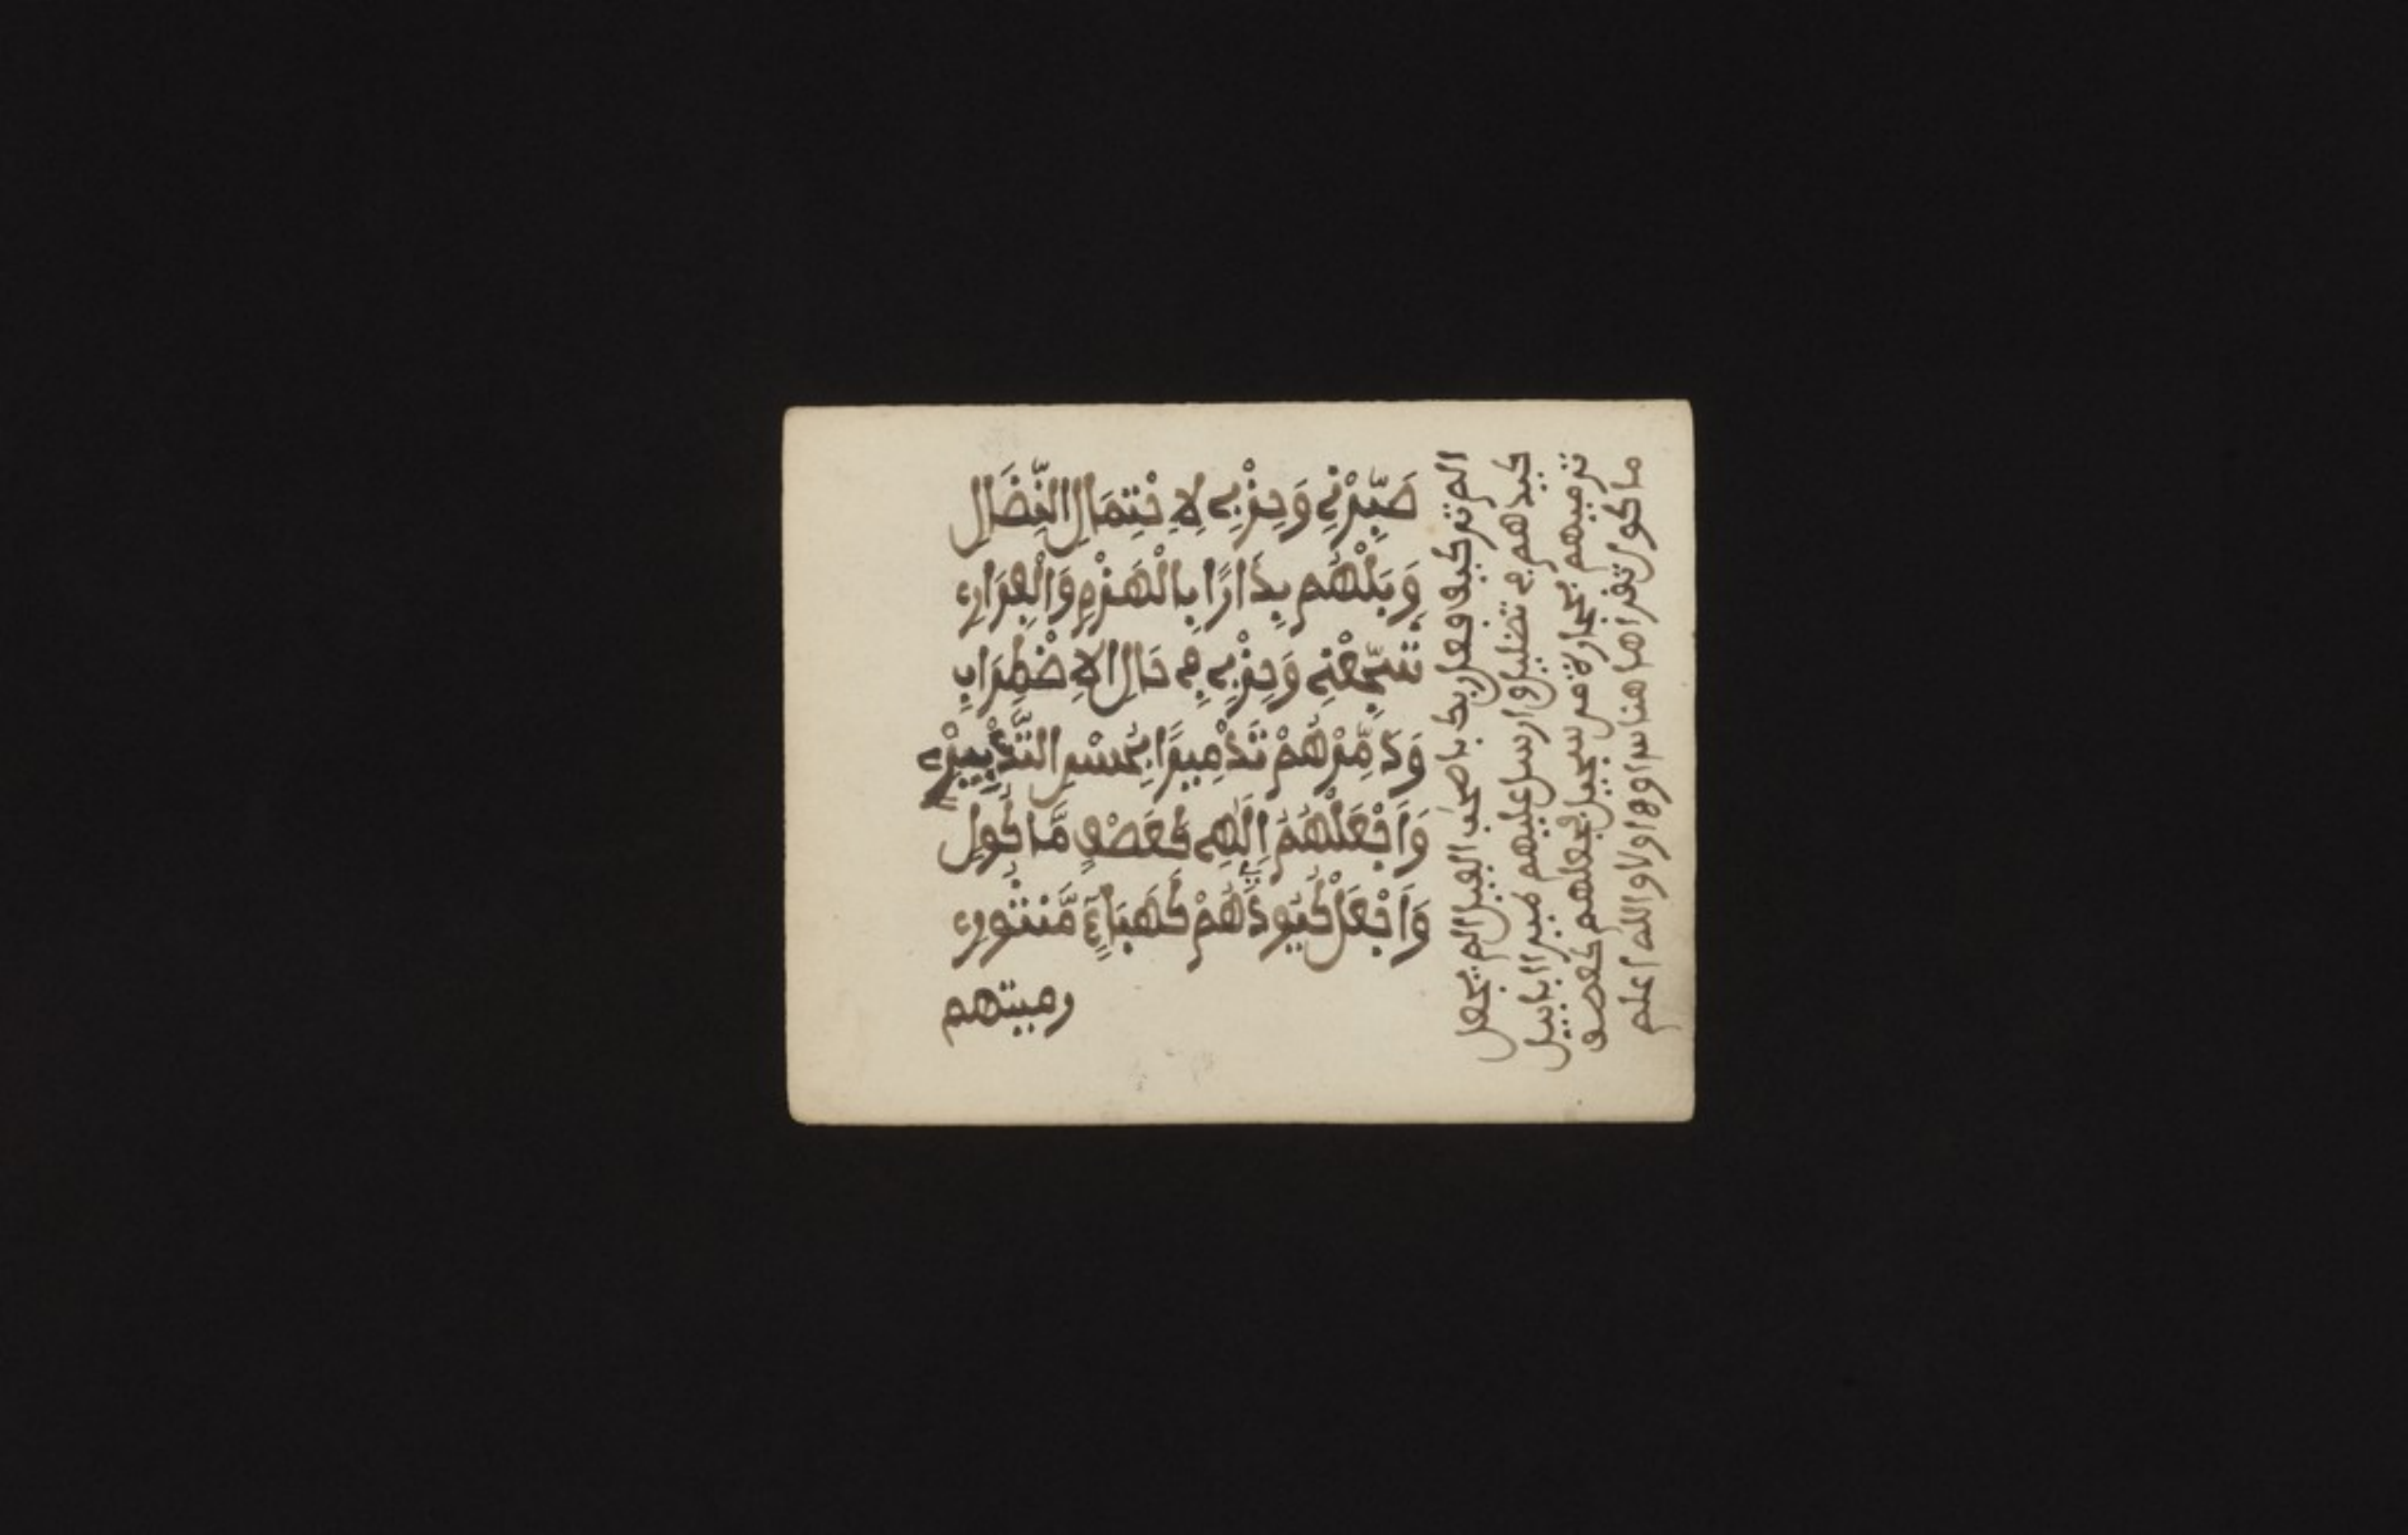 صَبِّرْنِے وَحِزْبِے لِاِحْتِمَالِ النِّضَالِ
وَبَلْهُم بِدَارًا بِالْهَزْمِ وَالْفِرَارِ
شَجِّعْنِے وَحِزْبِے فِے حَالِ الِاضْطِرَابِ
وَدَمِّرْهُمْ تَدْمِيرًا بِحُسْنِ التَّدْبِيرِ
وَاَجْعَلْهُمُ إِلَٰهِے كَعَصْفٍ مَّاكُولٍ
وَاَجْعَلْ كُيُودَهُمْ كَهَبَاءٍ مَّنثُورٍ
رميتهم
الم تر كيف فعل ربك باصحب الفيل الم يجعل
كيدهم في تضليل وارسل عليهم طيرا ابابيل
ترميهم بحجارة من سجيل فجعلهم كعصف
ماكول تقراها هنا والله اعلم